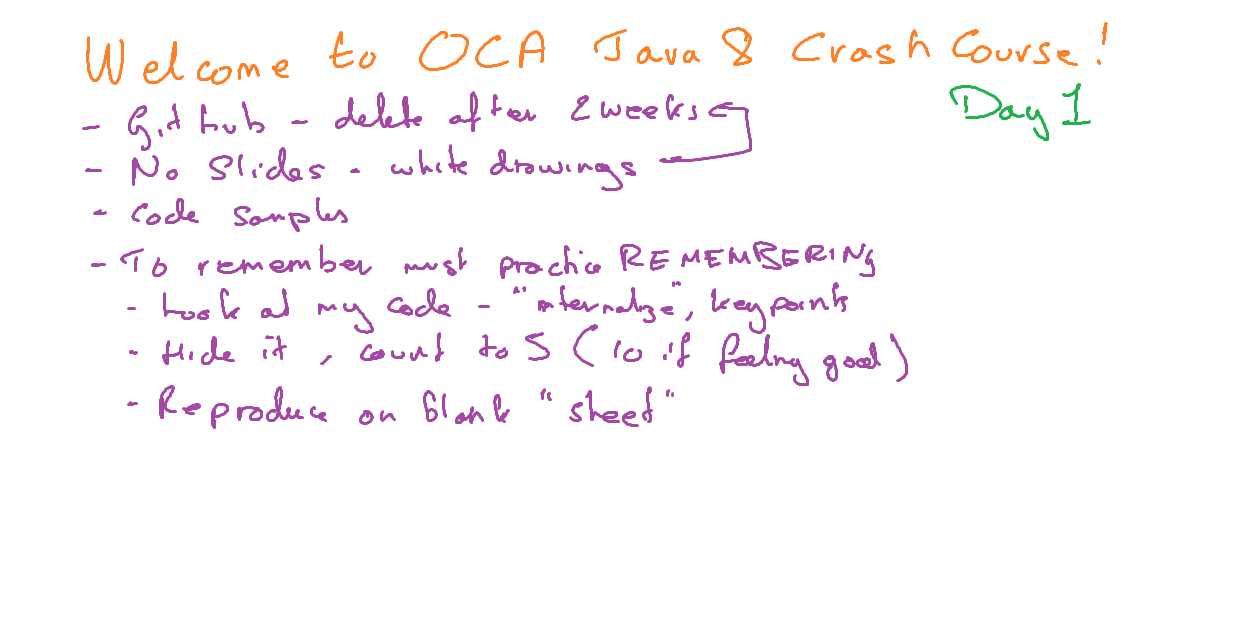 Welcome to OCA Java 8 Crash Course!
Day 1
- Github - delete after 2 weeks
- No Slides - white drawings
- Code samples
- To remember must practice REMEMBERING
- Look at my code - "internalize", key points
- Hide it, count to 5 (10 if feeling good)
- Reproduce on blank "sheet"